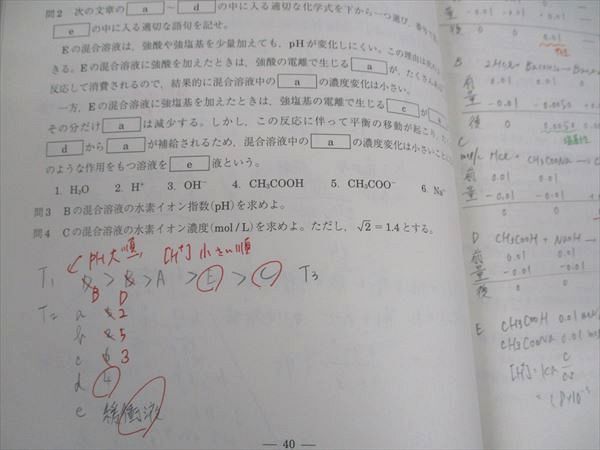 問2 次の文章の a ～ d の中に入る適切な化学式を下から一つ選び、番号で
e の中に入る適切な語句を記せ。
Eの混合溶液は，強酸や強塩基を少量加えても，pHが変化しにくい。この理由は
きる。Eの混合溶液に強酸を加えたときは，強酸の電離で生じる a が，たくさん
反応して消費されるので，結果的に混合溶液中の a の濃度変化は小さい。
一方，Eの混合溶液に強塩基を加えたときは，強塩基の電離で生じる c が
その分だけ a は減少する。しかし，この反応に伴って平衡の移動が起こり，
d から a が補給されるため，混合溶液中の a の濃度変化は小さい
のような作用をもつ溶液を e 液という。
1. H₂O 2. H⁺ 3. OH⁻ 4. CH₃COOH 5. CH₃COO⁻ 6. Na⁺
問3 Bの混合溶液の水素イオン指数(pH)を求めよ。
問4 Cの混合溶液の水素イオン濃度(mol/L)を求めよ。ただし，√2 = 1.4とする。
PH大順, [H⁺]小さい順
> > A > E > C T3
B D
a 2
b 5
c 3
d 4
e 緩衝液
— 40 —
量 -0.01 -0.01
後 0 0 0.01
B 2HCl +
前 0.01
量 -0.01 -0.0050
後 0 0.0050
塩基性
C
mol/L HCl + CH₃COONa
前 0.01 0.01
量 -0.01 -0.01
後 0 0
D CH₃COOH + NaOH
前 0.01 0.01
量 -0.01 -0.01
後 0 0
E CH₃COOH 0.01
CH₃COONa 0.01